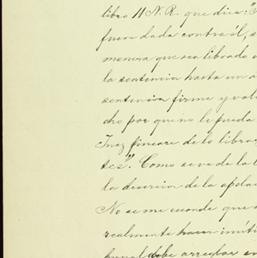 libro 11 N.R. que dice: "S
fuere dada contra él, s
manera que sea librado e
la sentencia hasta un a
sentencia firme y vala
cho por que no le pueda
Juez fincare de lo librar
tes". Como se ve da la l
la desercion de la apela
No se me esconde que
realmente hacer inuti
bunal debe arreglar su